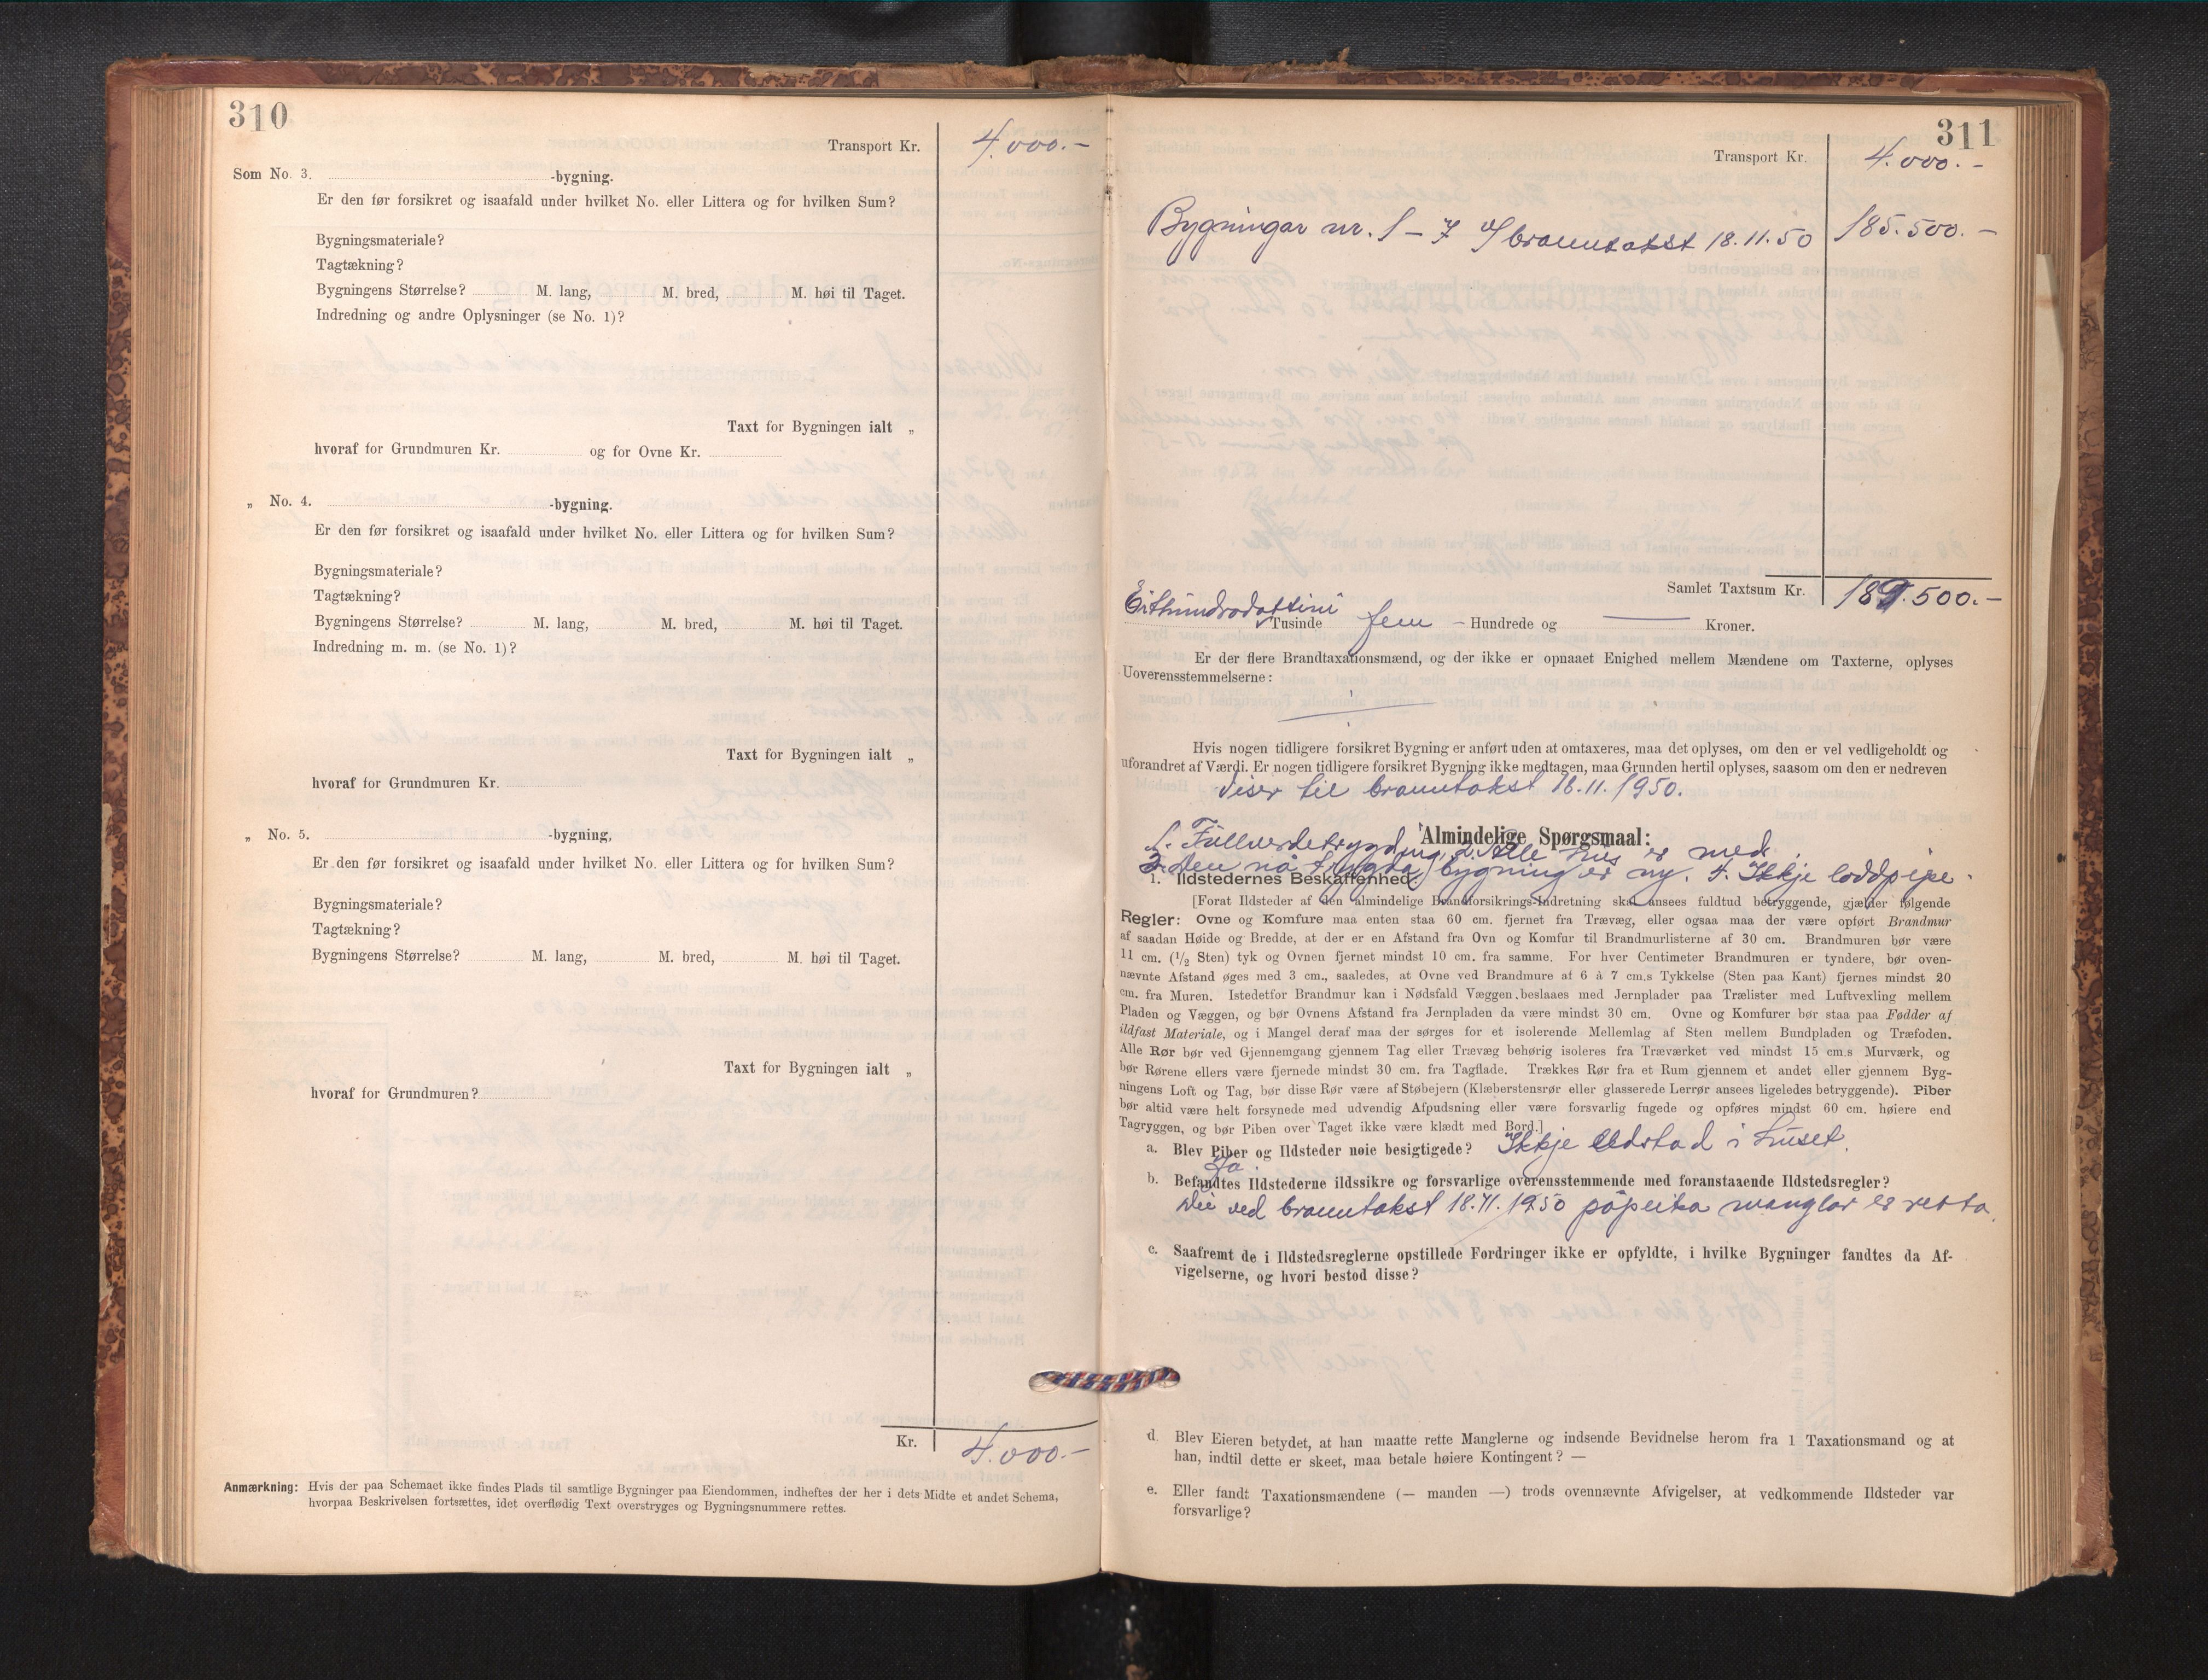 310
Transport Kr. 4.000.-
Som No. 3. -bygning.
Er den før forsikret og isaafald under hvilket No. eller Littera og for hvilken Sum?
Bygningsmateriale?
Tagtækning?
Bygningens Størrelse? M. lang, M. bred, M. høi til Taget.
Indredning og andre Oplysninger (se No. 1)?
Taxt for Bygningen ialt „
hvoraf for Grundmuren Kr. og for Ovne Kr.
„ No. 4. -bygning.
Er den før forsikret og isaafald under hvilket No. eller Littera og for hvilken Sum?
Bygningsmateriale?
Tagtækning?
Bygningens Størrelse? M. lang, M. bred, M. høi til Taget.
Indredning m. m. (se No. 1)?
Taxt for Bygningen ialt „
hvoraf for Grundmuren Kr.
„ No. 5. -bygning,
Er den før forsikret og isaafald under hvilket No. eller Littera og for hvilken Sum?
Bygningsmateriale?
Tagtækning?
Bygningens Størrelse? M. lang, M. bred, M. høi til Taget.
Taxt for Bygningen ialt „
hvoraf for Grundmuren?
Kr. 4.000.-
Anmærkning: Hvis der paa Schemaet ikke findes Plads til samtlige Bygninger paa Eiendommen, indheftes der her i dets Midte et andet Schema,
hvorpaa Beskrivelsen fortsættes, idet overflødig Text overstryges og Bygningsnummere rettes.
311
Transport Kr. 4.000.-
Bygningar nr. 1 - 7 branntakst 18.11.50 185.500.-
Samlet Taxtsum Kr. 189.500.-
Eithundradottini Tusinde fem - Hundrede og — Kroner.
Er der flere Brandtaxationsmænd, og der ikke er opnaaet Enighed mellem Mændene om Taxterne, oplyses
Uoverensstemmelserne:
Hvis nogen tidligere forsikret Bygning er anført uden at omtaxeres, maa det oplyses, om den er vel vedligeholdt og
uforandret af Værdi. Er nogen tidligere forsikret Bygning ikke medtagen, maa Grunden hertil oplyses, saasom om den er nedreven
Viser til branntakst 18.11.1950.
Almindelige Spørgsmaal:
1. Fullverdetrygding. 2. Alle hus er med.
3. Den nå trygda bygning er ny. 4. Ikkje loddpipe.
1. Ildstedernes Beskaffenhed.
[Forat Ildsteder af den almindelige Brandforsikrings-Indretning skal ansees fuldtud betryggende, gjælder følgende
Regler: Ovne og Komfure maa enten staa 60 cm. fjernet fra Trævæg, eller ogsaa maa der være opført Brandmur
af saadan Høide og Bredde, at der er en Afstand fra Ovn og Komfur til Brandmurlisterne af 30 cm. Brandmuren bør være
11 cm. (1/2 Sten) tyk og Ovnen fjernet mindst 10 cm. fra samme. For hver Centimeter Brandmuren er tyndere, bør oven-
nævnte Afstand øges med 3 cm., saaledes, at Ovne ved Brandmure af 6 à 7 cm.s Tykkelse (Sten paa Kant) fjernes mindst 20
cm. fra Muren. Istedetfor Brandmur kan i Nødsfald Væggen beslaaes med Jernplader paa Trælister med Luftvexling mellem
Pladen og Væggen, og bør Ovnens Afstand fra Jernpladen da være mindst 30 cm. Ovne og Komfurer bør staa paa Fødder af
ildfast Materiale, og i Mangel deraf maa der sørges for et isolerende Mellemlag af Sten mellem Bundpladen og Træfoden.
Alle Rør bør ved Gjennemgang gjennem Tag eller Trævæg behørig isoleres fra Træværket ved mindst 15 cm.s Murværk, og
bør Rørene ellers være fjernede mindst 30 cm. fra Tagflade. Trækkes Rør fra et Rum gjennem et andet eller gjennem Byg-
ningens Loft og Tag, bør disse Rør være af Støbejern (Klæberstensrør eller glasserede Lerrør ansees ligeledes betryggende). Piber
bør altid være helt forsynede med udvendig Afpudsning eller være forsvarlig fugede og opføres mindst 60 cm. høiere end
Tagryggen, og bør Piben over Taget ikke være klædt med Bord.]
a. Blev Piber og Ildsteder nøie besigtigede? Ikkje eldstad i huset.
Ja.
b. Befandtes Ildstederne ildssikre og forsvarlige overensstemmende med foranstaaende Ildstedsregler?
Dei ved branntakst 18.11.1950 påpeika manglar er retta.
c. Saafremt de i Ildstedsreglerne opstillede Fordringer ikke er opfyldte, i hvilke Bygninger fandtes da Af-
vigelserne, og hvori bestod disse?
d. Blev Eieren betydet, at han maatte rette Manglerne og indsende Bevidnelse herom fra 1 Taxationsmand og at
han, indtil dette er skeet, maa betale høiere Kontingent? —
e. Eller fandt Taxationsmændene (— manden —) trods ovennævnte Afvigelser, at vedkommende Ildsteder var
forsvarlige?